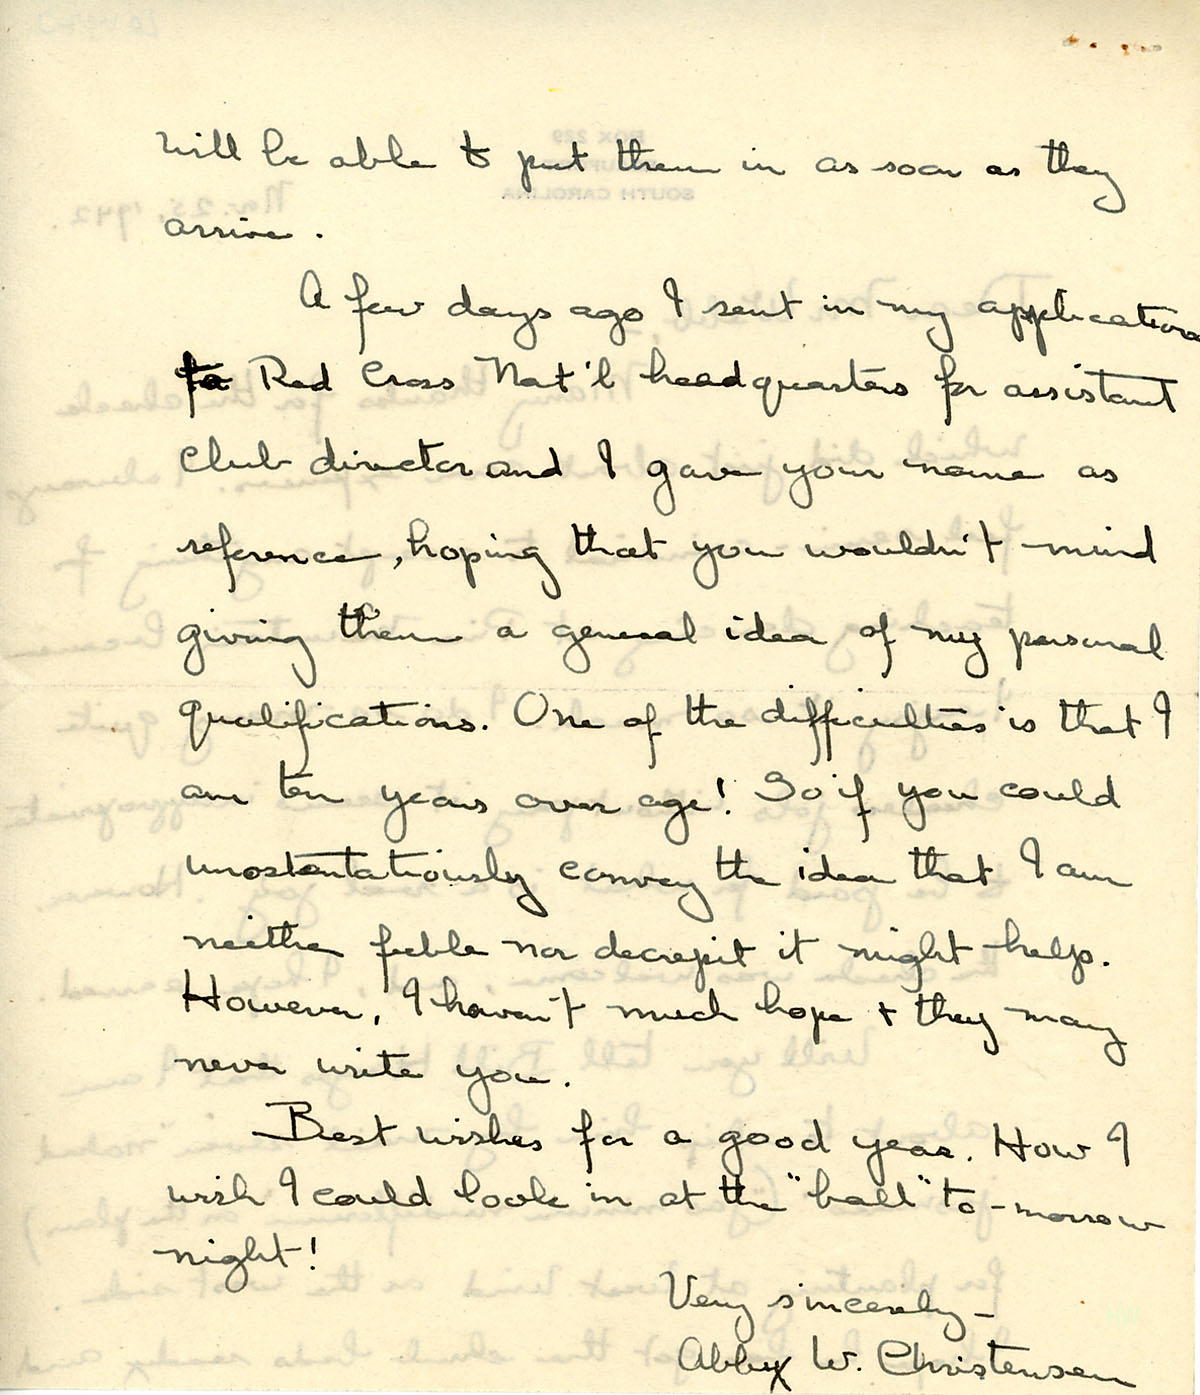 will be able to put them in as soon as they
arrive.
A few days ago I sent in my application
to Red Cross Nat'l headquarters for assistant
club director and I gave your name as
reference, hoping that you wouldn't mind
giving them a general idea of my personal
qualifications. One of the difficulties is that I
am ten years over age! So if you could
unostentatiously convey the idea that I am
neither feeble nor decrepit it might help.
However, I haven't much hope + they may
never write you.
Best wishes for a good year. How I
wish I could look in at the "ball" to-morrow
night!
Very sincerely -
Abby W. Christensen